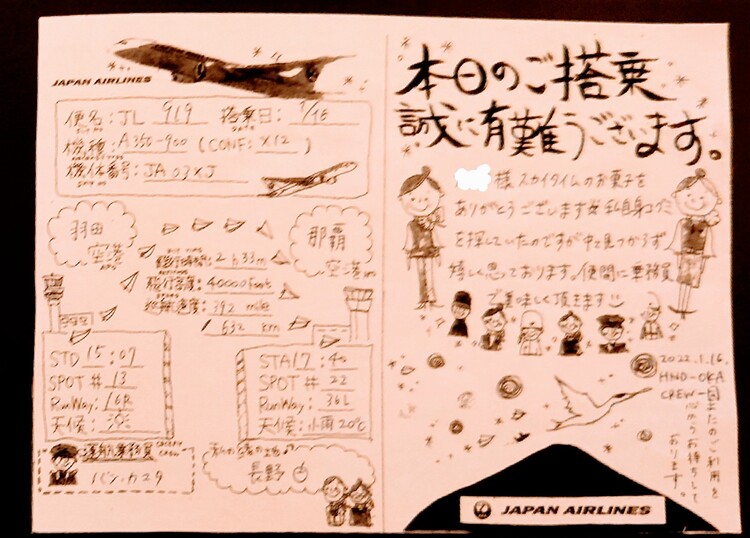 JAPAN AIRLINES
便名:JL 919 搭乗日:1/16
機種:A350-900 (CONF: X12)
機体番号:JA03XJ
羽田
空港
那覇
空港
飛行時間:2h33m
飛行高度:40000feet
392 mile
632 km
STD 15:07
SPOT # 13
RunWay: 16R
天候:
STA 17:40
SPOT # 22
RunWay: 36L
天候:小雨20℃
運航乗務員
長野
本日のご搭乗
誠に有難うございます。
様スカイタイムのお菓子を
ありがとうございます 私自身コグミ
を探していたのですが中々見つからず
嬉しく思っております。便間に乗務員
で美味しく頂きます
2022.1.16.
HND-OKA
CREW一同
またのご利用を
心からお待ちして
おります。
JAPAN AIRLINES